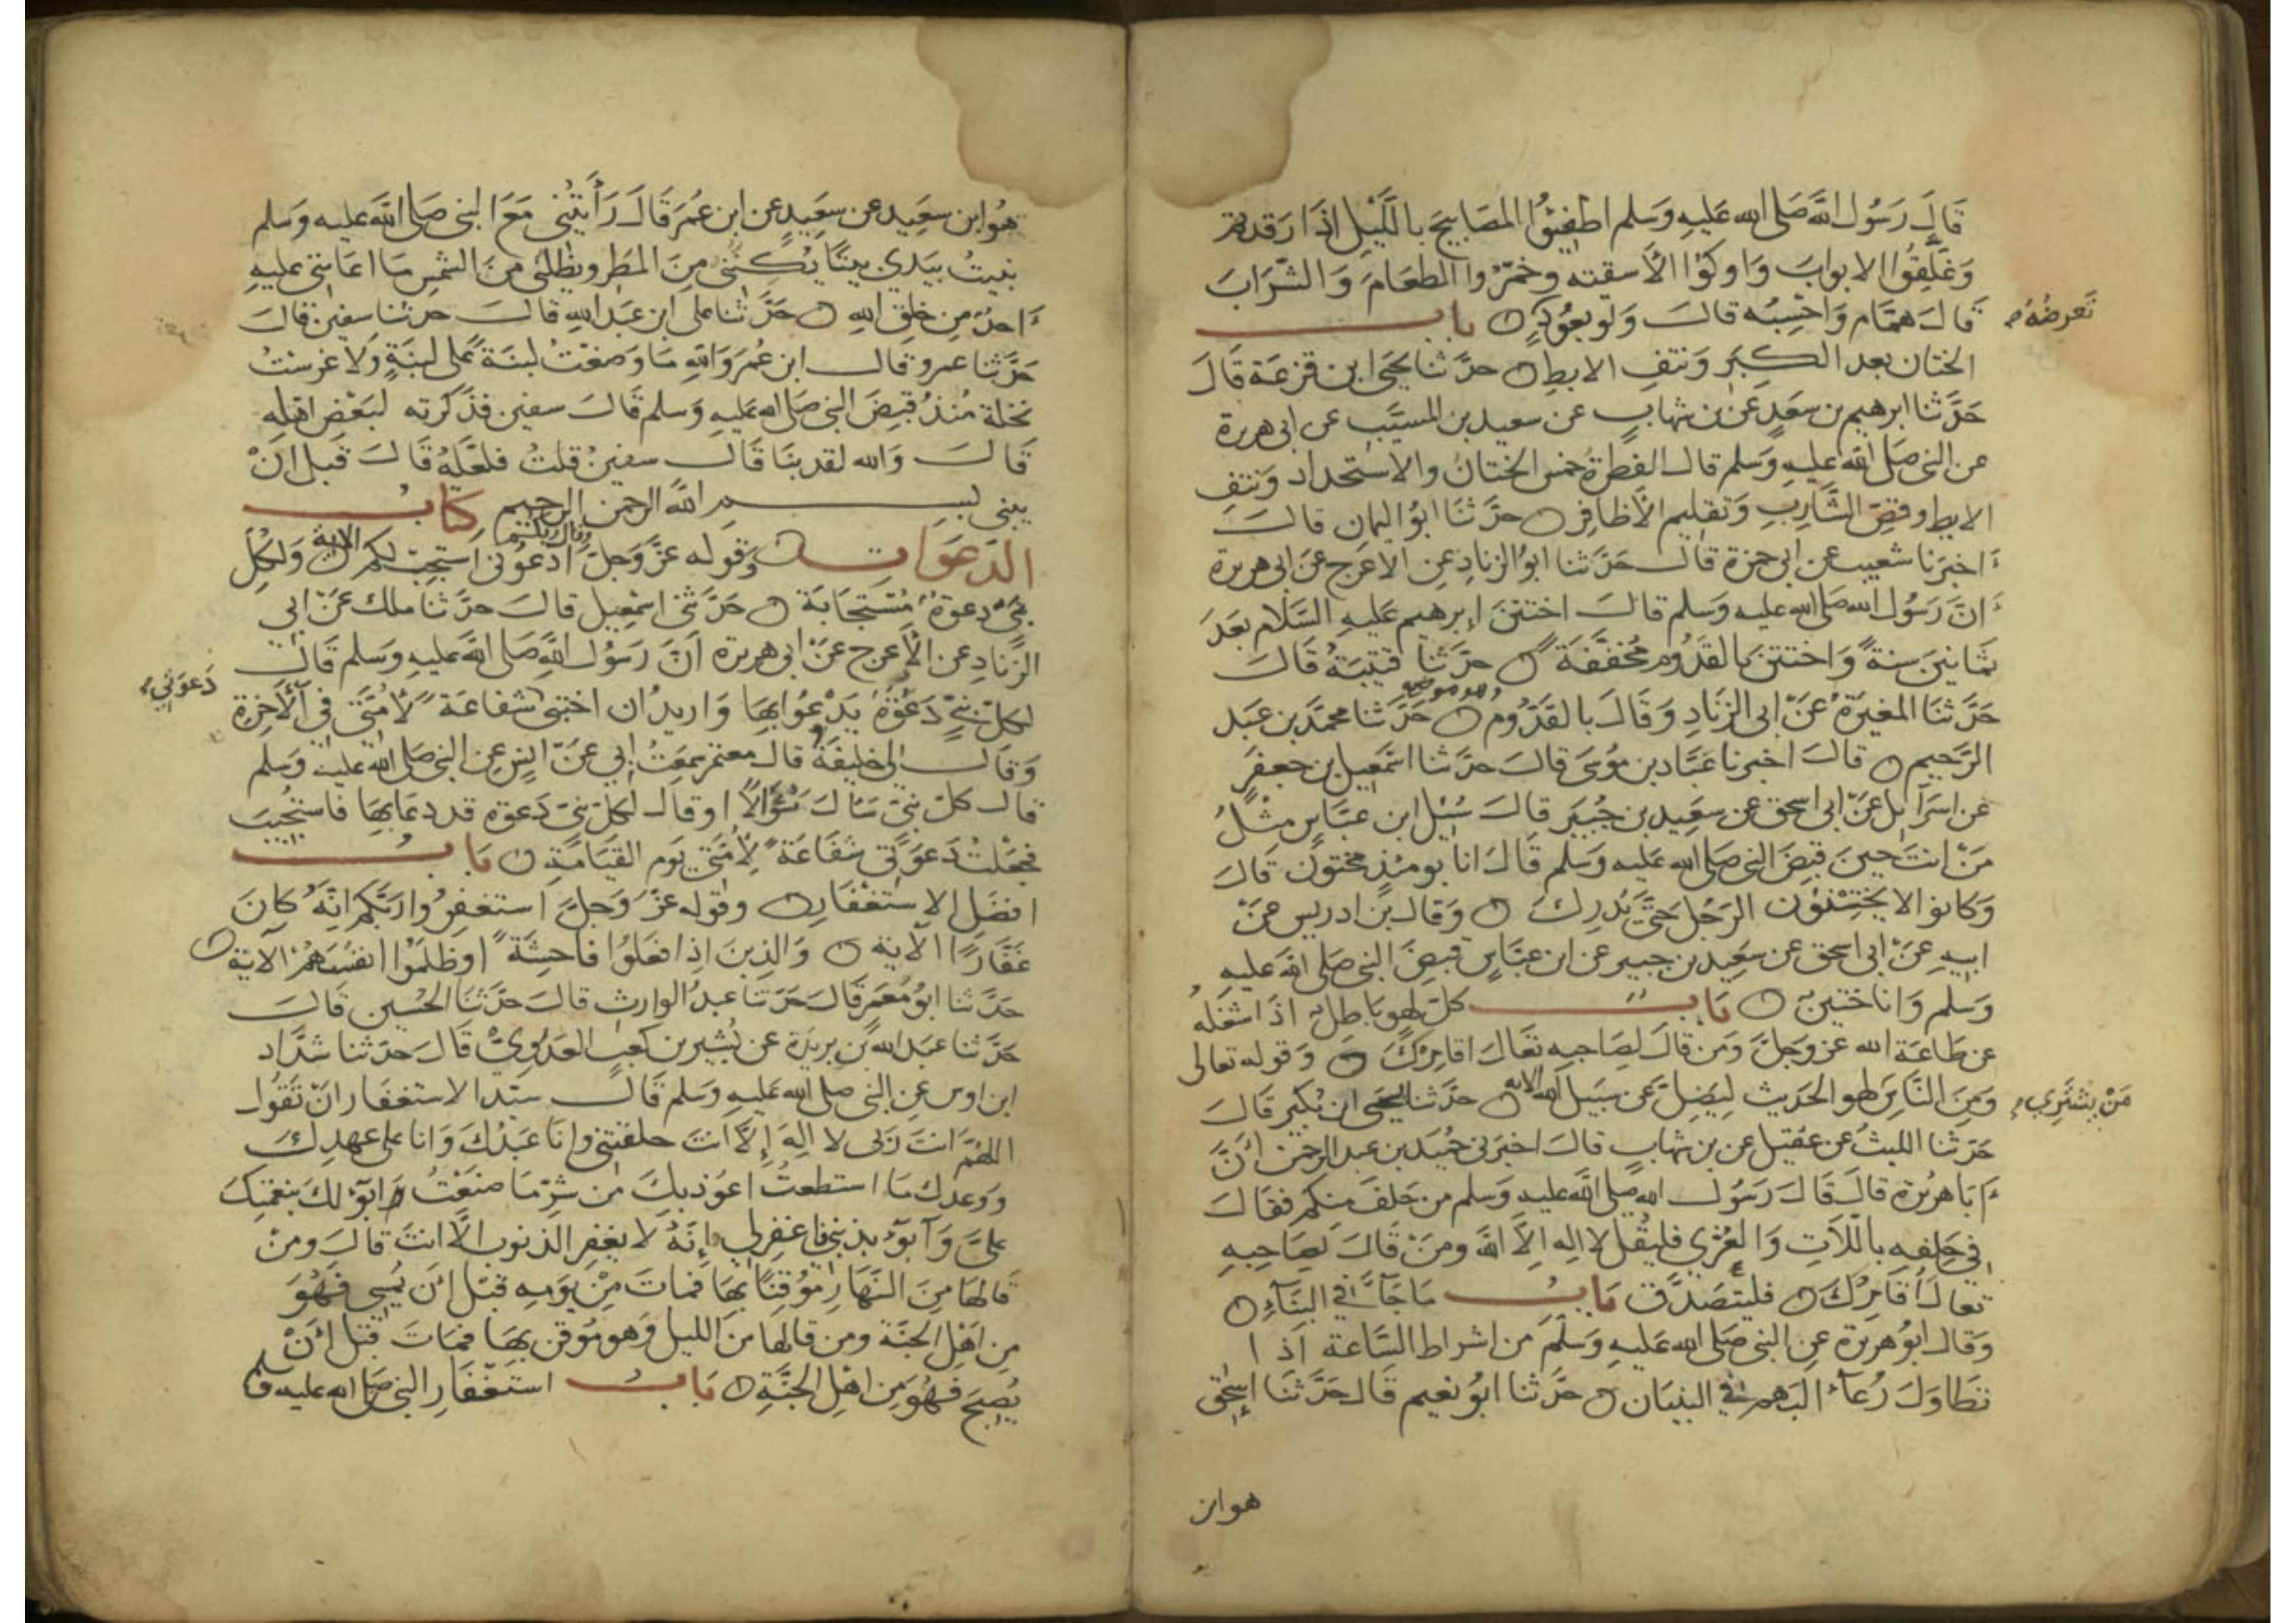 قَالَ رَسُولُ اللَّه صَلى الله عَليهِ وَسَلم اطفِئُوا المصَابيحَ باللَّيْلِ اذَا رَقدتم
وَغَلِّقُوا الابوابَ وَاوكوُا الأسقيته وخمّرُوا الطعَامَ وَالشّرَابَ
قَالَ همَّام وَاحْسِبُه قالَ وَلو بعُودٍ باب
تَعرضُهُ
الختان بعد الكِبَرِ وَنتفِ الابطِ حدَّثنا يَحيَى ابن قزعَة قَالَ
حَدَّثنا ابرهيم بن سعَدٍ عَن بن شهابٍ عن سعيد بن المسيَّب عن ابى هريرة
عن النبى صَلى الله عَليهِ وَسَلم قال الفطرةُ خمس الختانُ والاستحداد وَنتفِ
الابط وقصِّ الشَّارِبِ وَتقليم الأظافِرِ حدَّثنَا ابوُ اليمانِ قالَ
اخبَرَنا شعَيب عن ابى حمزة قالَ حَدَّثنا ابوُ الزنادِ عِن الاعَرج عَن ابى هريرة
انَّ رَسُول الله صَلى الله عليه وسلم قالَ اختتنَ إبرهيم عَليهِ السَّلام بعَدَ
ثمَانينَ سنةً وَاختتنَ بالقدُوم مُخَفَّفَة حدَّثنا قتيبَةُ قَالَ
حَدَّثنَا المغيَرةُ عَنْ ابى الزّنَادِ وَقَالَ بالقَدُّومِ وهو موضع حَدَّثنا محمَّد بن عَبَد
الرَّحيم قالَ اخبرنا عَبَّاد بن مُوسَى قالَ حدَّثنا اسمَعِيل بن جعفَرٍ
عن اسرَآئيل عَنْ ابى اسحق عن سعَيِد بن جُبيَر قالَ سُئِل ابن عبَّاسٍ مثْلُ
مَنْ انتَ حينَ قبِضَ النبى صَلى الله عَليه وَسلم قَالَ انا يومئذٍ مختونٌ قَالَ
وَكانوا لا يختِنُونَ الرَجُل حَتَّى يُدرِكَ وَقال بن ادريس عَنْ
ابيهِ عَنْ ابى اسحق عن سعَيِد بن جبير عن ابن عبَّاسٍ قبِضَ النبى صَلى الله عَليهِ
وَسلم وَانا ختين بَاب كلّ لهو باطل اذَا اشغَلَه
عن طَاعَة الله عز وَجلَّ وَمن قالَ لصَاحبِه تعَالَ اقامِرْكَ وَقوله تعالى
وَمِنَ النَّاسِ لهو الحَديث ليُضِلَّ عَن سَبيل الله الايه حدَّثنا يحيى ابن بُكَير قَالَ
مَنْ يشتَرِي
حَدّثنا الليثُ عن عقيل عن بن شهابٍ قالَ اخبَرنى حُميَد بن عبد الرحمن اَنَّ
اَبا هرُيرة قالَ قَالَ رَسُولُ الله صَلى الله عليه وَسلم من حَلفَ منكم فقالَ
فِى حَلِفهِ باللّاتِ وَالعُزَّى فليقُل لا اله الاّ الله ومَن قَالَ لصَاحِبهِ
تعالَ اُقَامِرْكَ فليتصَدَّق بَاب مَا جَآءَ فى البنَآءِ
وَقال ابوُ هريرة عن النبى صَلى الله عَليهِ وَسَلَّمَ من اشراط السَّاعة اذا
تطَاوَلَ رُعآءُ البَهمِ فى البنيَانِ حدَّثنا ابوُ نعيم قَال حَدَّثنَا إسحٰق
هو ابن
هُوَ ابن سعَيِد عن سعَيِدٍ عن ابن عُمَر قَالَ رَأَيتُنى مَعَ النبى صَلى الله عليه وَسَلم
بنيتُ بيَدى بيتًا يُكِنُّنى مِنَ المطَرِ ويظلنى مِنَ الشمسِ مَا اعَاننى عليهِ
احدٌ من خلقِ اللهِ حَدَّثنا على ابن عَبد اللهِ قالَ حدثنا سفين قالَ
حَدَّثنا عمرو قال ابن عُمرَ وَاللهِ مَا وَضعْتُ لبنَةً عَلى لبنَةٍ وَلَا غرستُ
نخلةً مُنذُ قبِضَ النبى صَلى الله عليهِ وَسلم قَالَ سفين فذكرته لبَعْض اهلِه
قَالَ وَالله لقد بنَا قَالَ سفينُ قلتُ فلعَلَّهُ قَالَ قَبل اَنْ
يبنى بسم اللَّه الرحمن الرحيم كتَاب
الدّعَوَات وَقَوله عَزَّ وَجلَّ وقال ربكم ادعُونى استجبْ لكم الاية وَلكُلِّ
نبىٍّ دعوَةٌ مُسْتجَابَة حَدَّثنى اسمَعِيل قالَ حدَّثنا ملك عَنْ ابى
الزِّنادِ عن الأعرج عَنْ ابى هريرة اَنَّ رَسُول اللَّهِ صَلى الله عَليهِ وَسلم قَالَ
لكلّ نبىٍّ دَعْوَةٌ يَدْعُوا بهَا وَاريدُ ان اختبى شفاعَةً لأُمّتى فى الآخِرَةِ
دَعوَتِي
وَقالَ لى خليفَة قالَ معتمر سَمِعَتُ ابي عَنْ انسٍ عِن النبى صَلى الله عليه وَسَلم
قال كلّ نبىٍّ سَأَلَ سُؤَالاً او قالَ لكلّ نبىٍّ دَعوة قد دعَا بهَا فاستُجيبَ
فجعَلتُ دَعوَتى شفَاعَةً لِأمَّتى يَوم القيَامَةِ بَاب
افضَلِ الاستغْفَارِ وقوله عَزَّ وَجلَّ استغفِرُوا رَبّكم انّهُ كانَ
غفَّارًا الآية وَالذينَ اذِا فعَلوُا فاحِشَةً او ظلَمُوا انفسَهُمْ الآية
حدَّثنا ابوُ مَعمَر قَالَ حَدّثنا عَبدُ الوارِثِ قالَ حدَّثنَا الحُسَين قَالَ
حَدَّثنا عَبَد الله بن بريدَة عن بُشَير بن كعَبٍ العدَوِيّ قَالَ حدثنا شدَّاد
ابن اوس عِن النبى صلى الله عَليهِ وَسلم قَالَ سيّد الاستغفَار انْ تقوُلَ
اللهُمَّ انتَ رَبى لا الهَ إِلاَّ انتَ خلقتنى وانَا عَبدُكَ وَانا على عهدِكَ
وَوَعدِكَ مَا استطعتُ اعوُذ بكَ من شرِّ مَا صَنعْتُ وَابوُءُ لكَ بنعمتِكَ
علىَّ وَآبوُء بذنبى فاغفِرلي اِنَّهُ لا يغفِر الذنوب الاّ انتَ قالَ ومَنْ
قالهَا مِنَ النَّهَارِ مُوقنًا بهَا فمَاتَ مِنْ يوَمِهِ قبْل اَن يُمسِى فهُوَ
مِن اهْلِ الجنَّة ومن قالهَا مَن الليل وَهو موُقن بهَا فمَاتَ قبْل اَنْ
يُصبحَ فهُوَ مِن اهْلِ الجنَّةِ بَاب استغْفَار النبى صَلى الله عليه وسلم